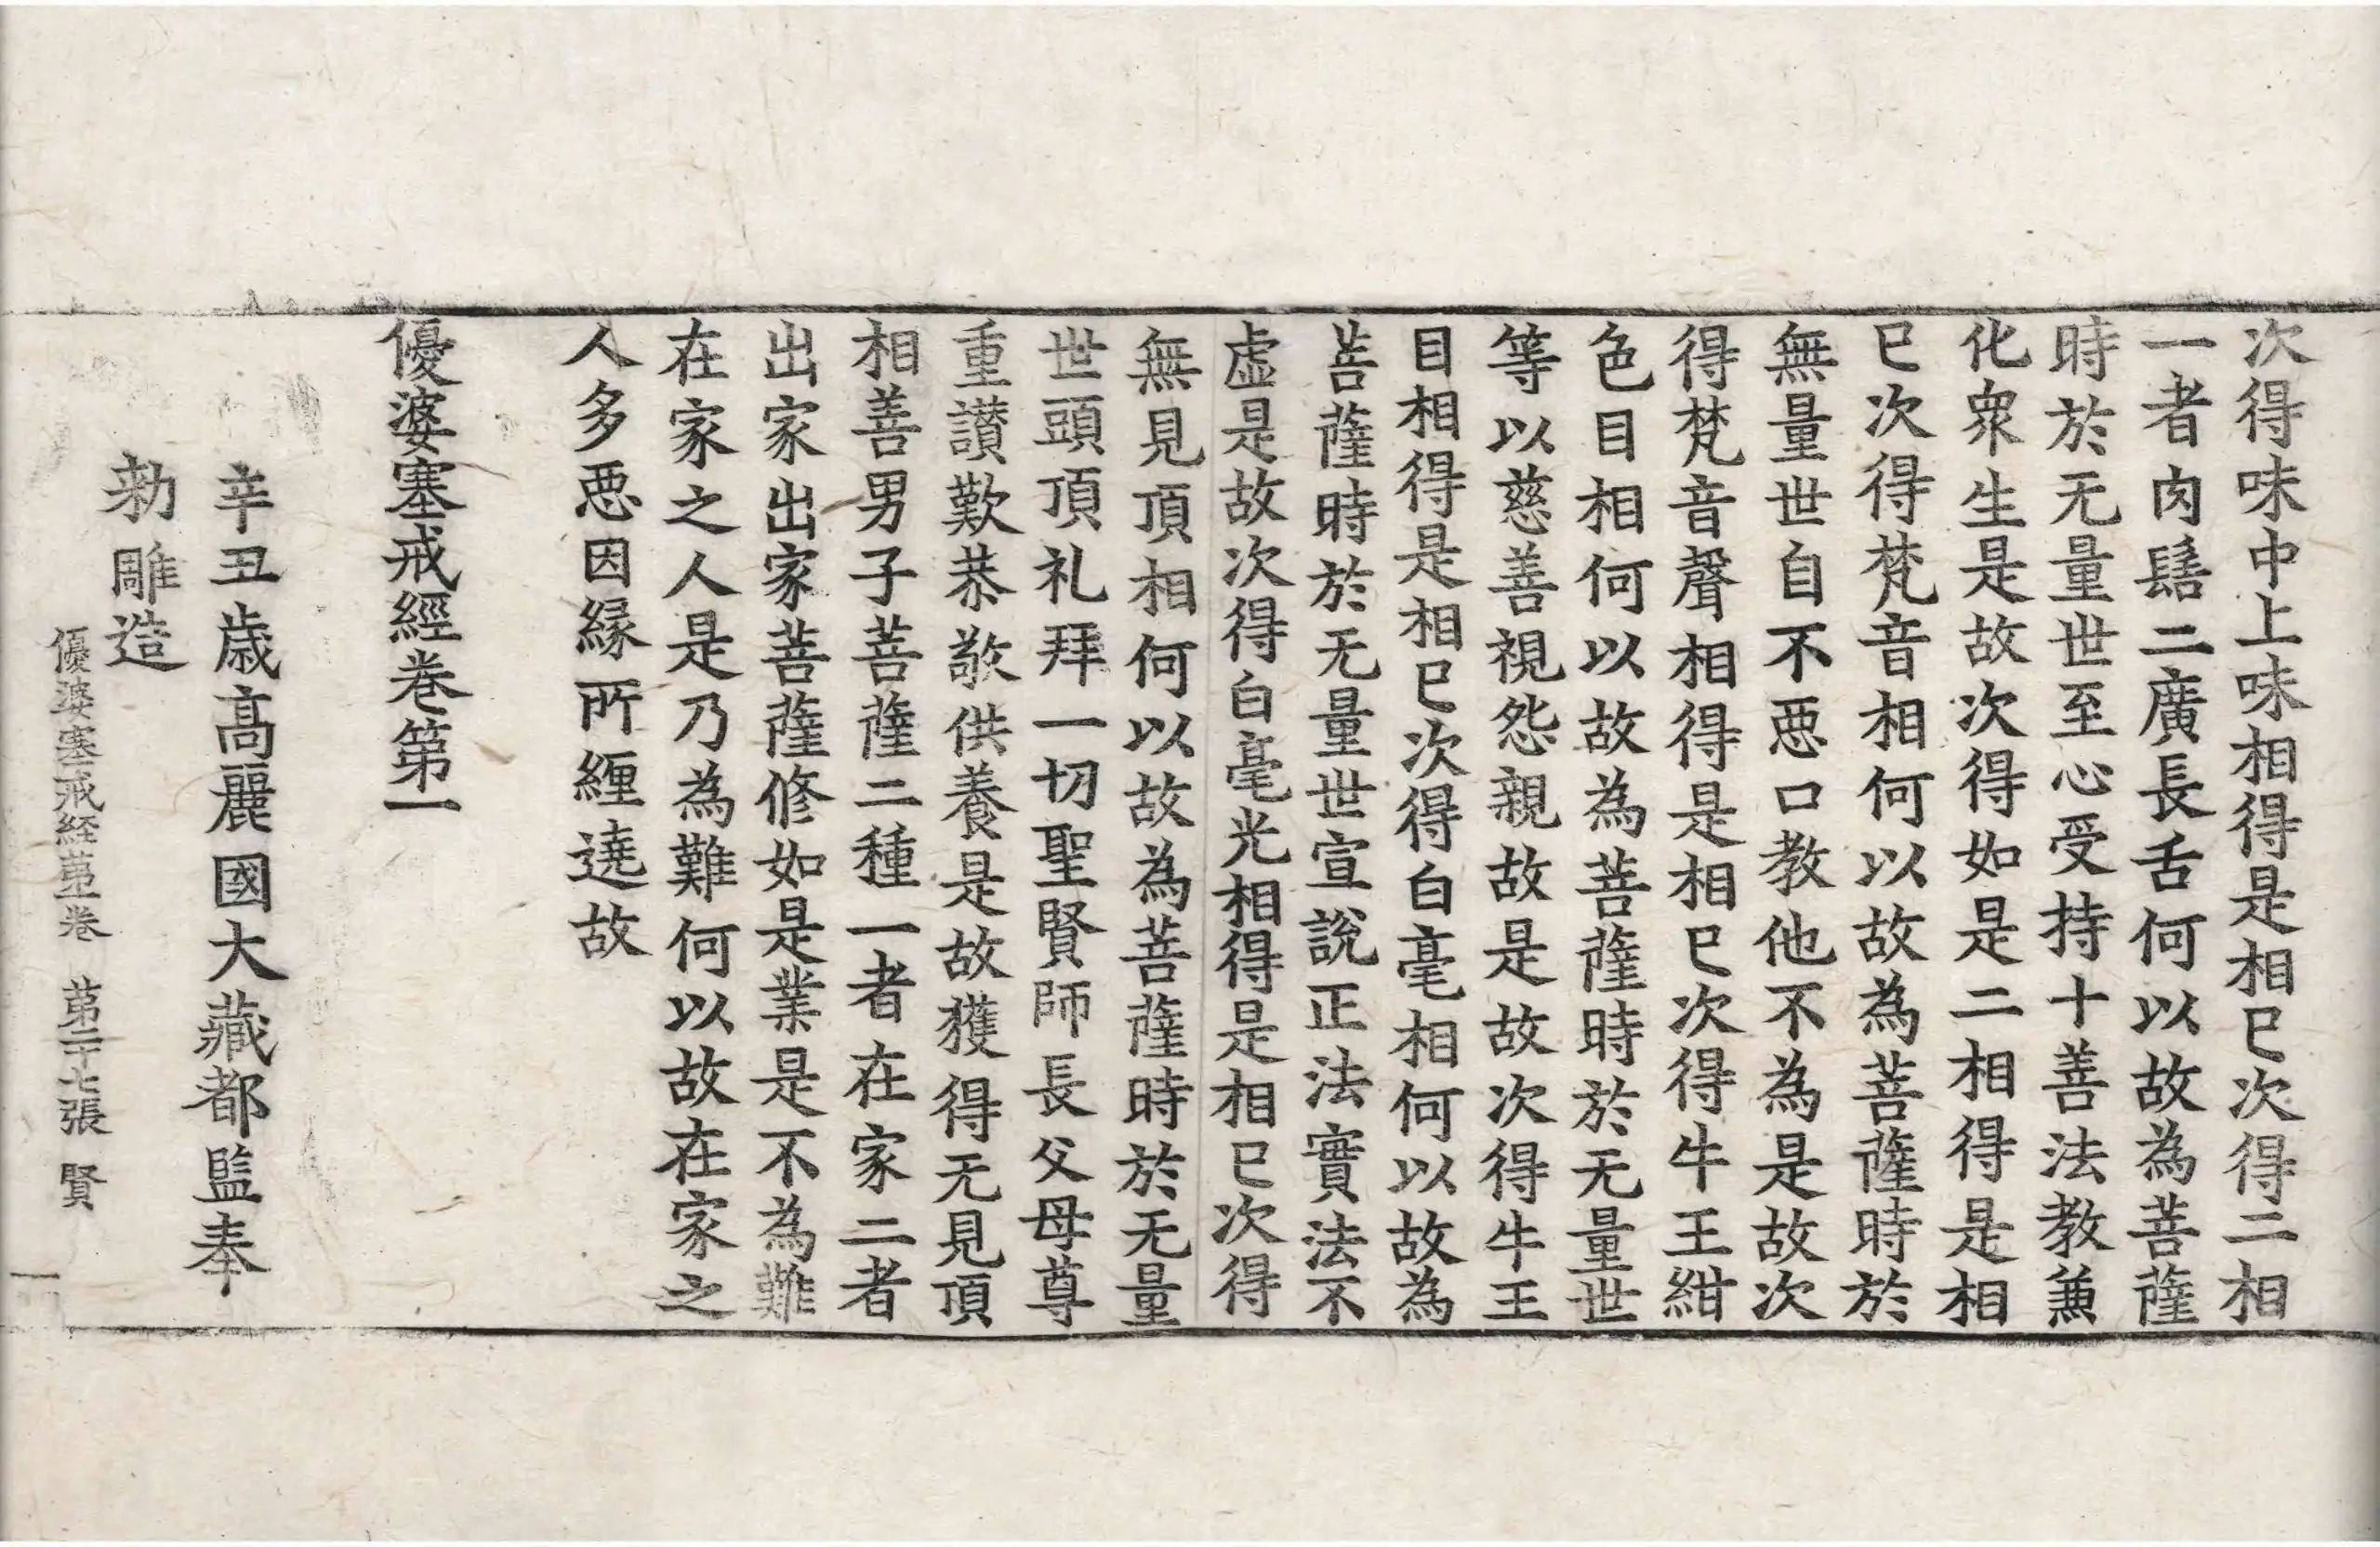 次得味中上味相得是相已次得二相
一者肉髻二廣長舌何以故為菩薩
時於无量世至心受持十善法教兼
化衆生是故次得如是二相得是相
已次得梵音相何以故為菩薩時於
無量世自不惡口教他不為是故次
得梵音聲相得是相已次得牛王紺
色目相何以故為菩薩時於无量世
等以慈善視怨親故是故次得牛王
目相得是相已次得白毫相何以故為
菩薩時於无量世宣說正法實法不
虛是故次得白毫光相得是相已次得
無見頂相何以故為菩薩時於无量
世頭頂礼拜一切聖賢師長父母尊
重讃歎恭敬供養是故獲得无見頂
相善男子菩薩二種一者在家二者
出家出家菩薩修如是業是不為難
在家之人是乃為難何以故在家之
人多惡因緣所纏遶故
優婆塞戒經卷第一
辛丑歲高麗國大藏都監奉
勅雕造
優婆塞戒経苐一卷 苐二十七張 賢